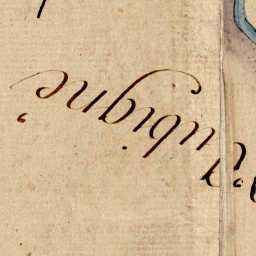 'Aubigné